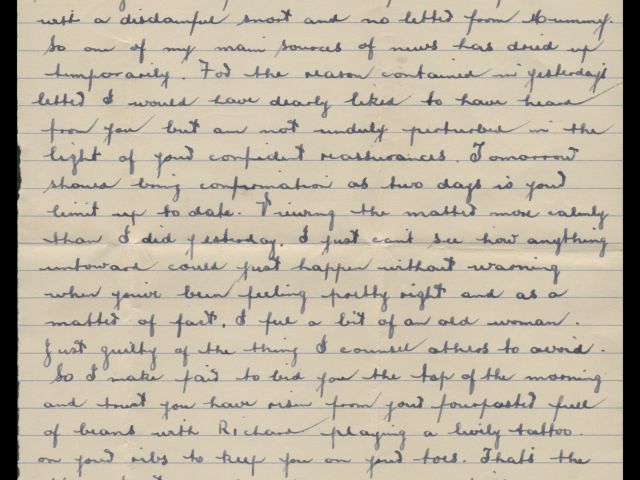 with a disdainful snort and no letter from Mummy.
So one of my main sources of news has dried up
temporarily. For the reason contained in yesterday's
letter I would have dearly liked to have heard
from you but am not unduly perturbed in the
light of your confident reassurances. Tomorrow
should bring confirmation as two days is your
limit up to date. Viewing the matter more calmly
than I did yesterday, I just can't see how anything
untoward could just happen without warning
when you've been feeling pretty right and as a
matter of fact, I feel a bit of an old woman.
Just guilty of the thing I counsel others to avoid.
So I make fair to bid you the top of the morning
and trust you have risen from your fourposter full
of beans with Richard playing a lively tattoo
on your ribs to keep you on your toes. That's the